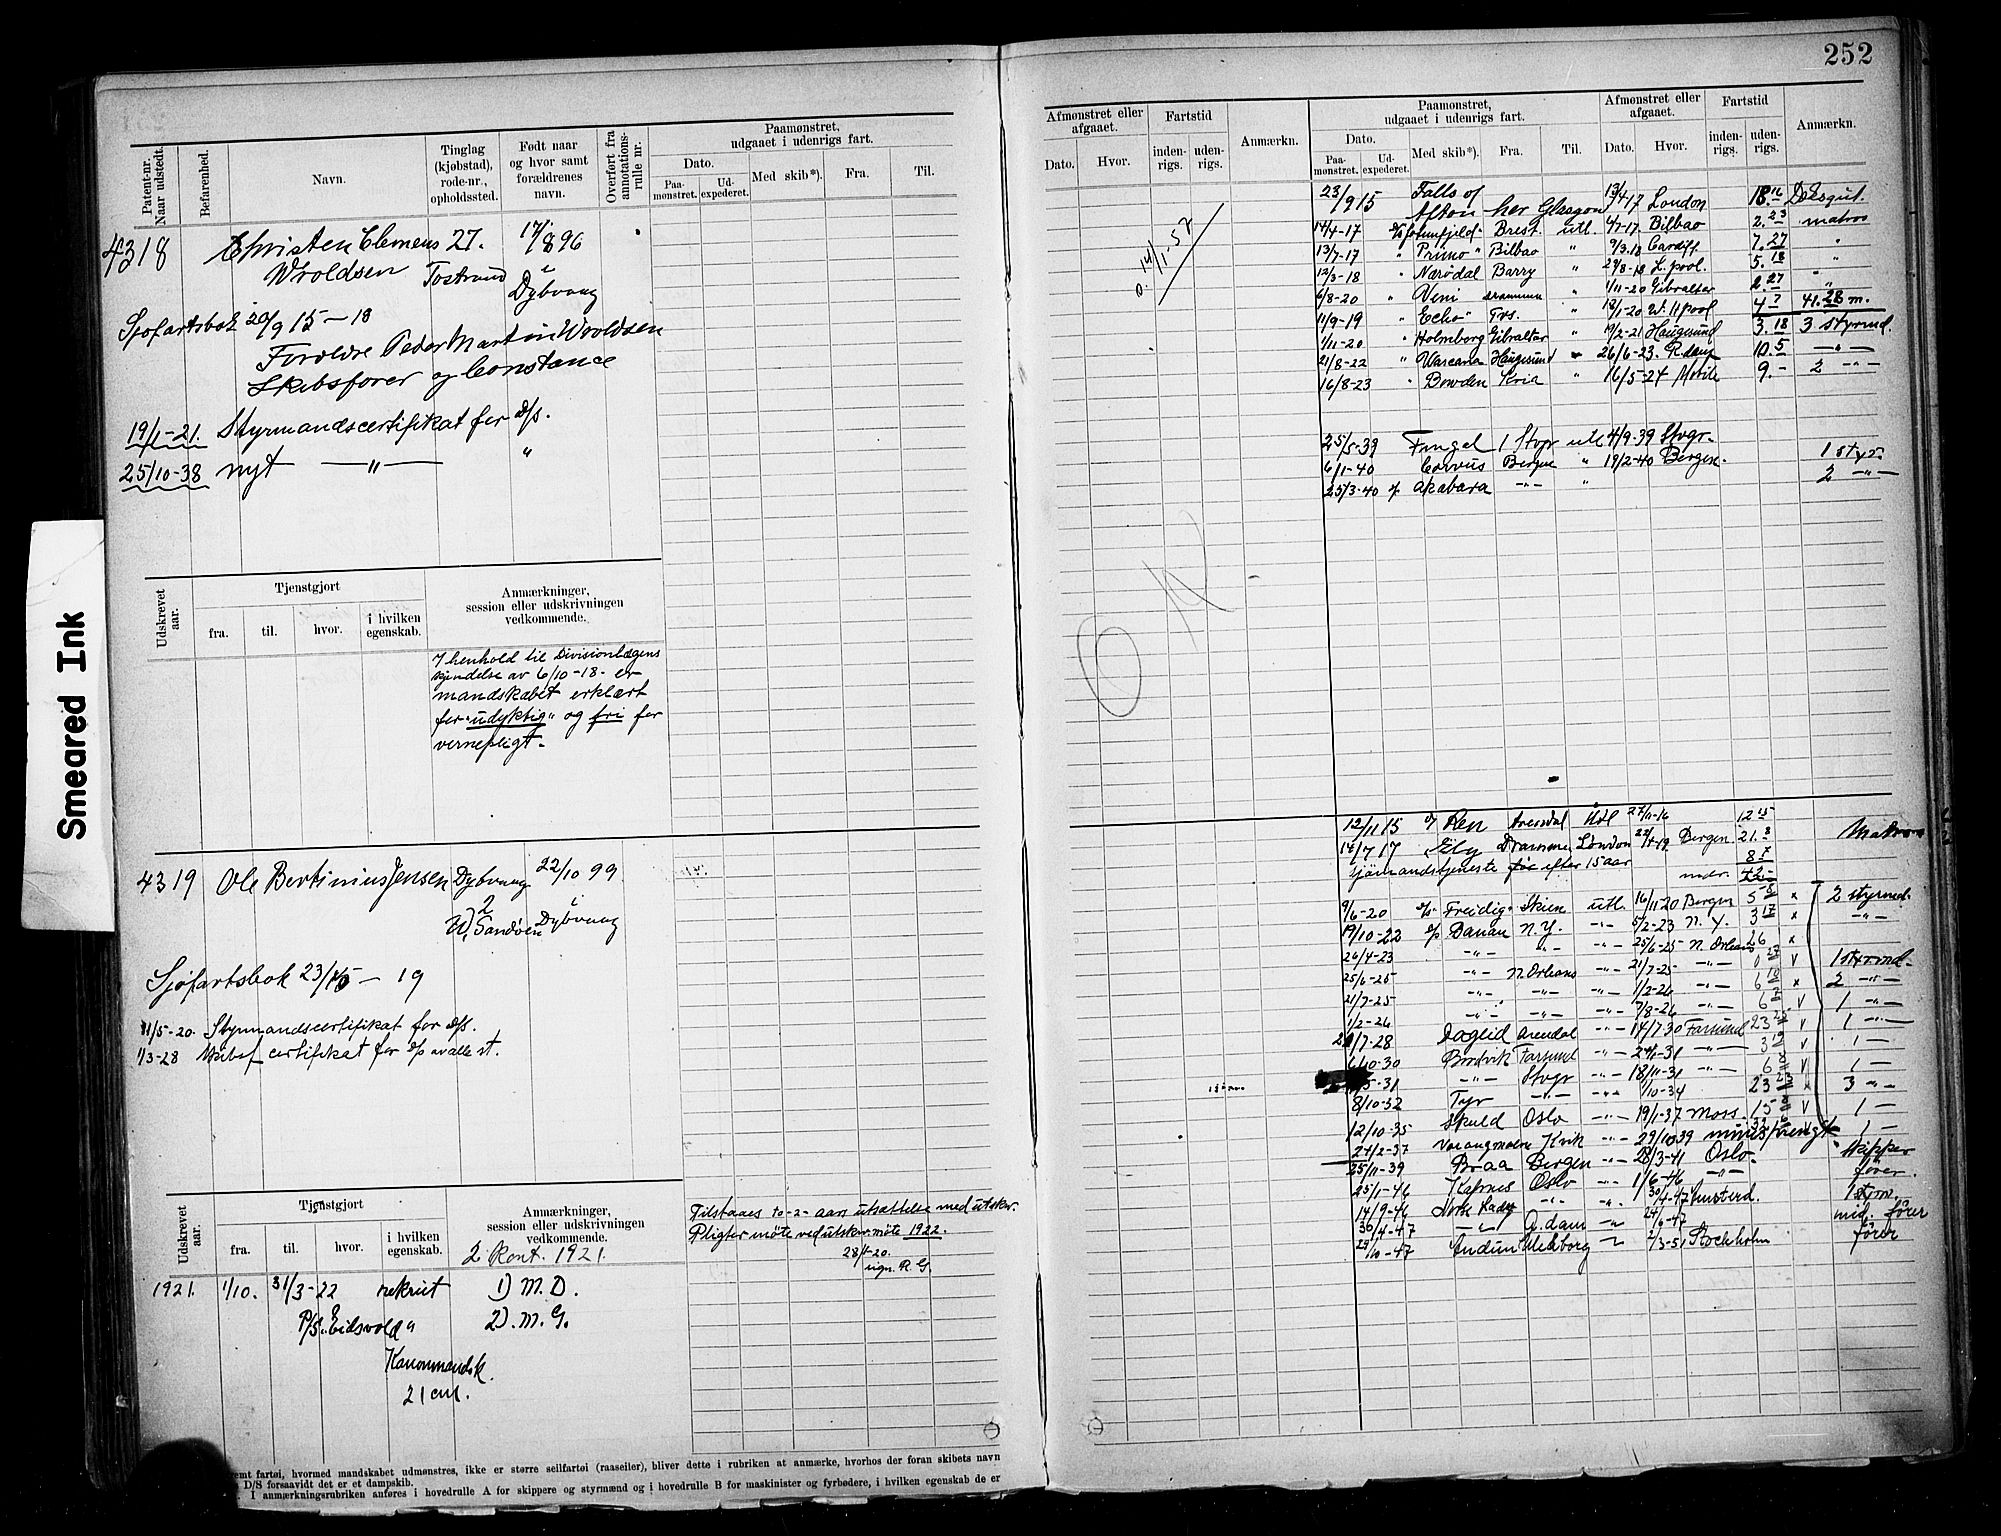 252
Patent-nr. Naar udstedt.
Befarenhed.
Navn.
Tinglag (kjøbstad), rode-nr., opholdssted.
Født naar og hvor samt forældrenes navn.
Overført fra annotations-rulle nr.
Paamønstret, udgaaet i udenrigs fart.
Dato.
Paa-mønstret.
Ud-expederet.
Med skib*).
Fra.
Til.
4318 Christen Clemens 27. 17/8 96
Wroldsen Tostrund
Dybvaag
Sjøfartsbok 20/9 15 — 18
Foreldre Peder Martin Wroldsen
Skibsfører og Constance
19/1-21. Styrmandscertifikat for d/s.
25/10-38 nyt —"— "
Udskrevet aar.
Tjenstgjort
fra.
til.
hvor.
i hvilken egenskab.
Anmærkninger, session eller udskrivningen vedkommende.
I henhold til Divisionlægens
kjendelse av 6/10-18- er
mandskabet erklært
for "udyktig" og fri for
vernepligt.
4319 Ole Bertinius Jensen Dybvaag 22/10 99
2
Sandøen Dybvaag
Sjøfartsbok 23/ — 19
11/5-20. Styrmandscertifikat for d/s.
1/3-28 Skibsf. certifikat for d/s av alle st.
Udskrevet aar.
Tjenstgjort
fra.
til.
hvor.
i hvilken egenskab.
Anmærkninger, session eller udskrivningen vedkommende.
2 Kont. 1921.
1921. 1/10. 31/3-22 rekrut 1) M.D.
P/S. "Eidsvold" 2). M.G.
Kanonmandsk.
21 cm.
Tilstaaes to -2- aars utsættelse med utskr.
Pligter møte ved utskr. møte 1922.
28/4-20.
sign. R.G.
emt fartøi, hvormed mandskabet udmønstres, ikke er større seilfartøi (raaseiler), bliver dette i rubriken at anmærke, hvorhos der foran skibets navn
D/S forsaavidt det er et dampskib.
I anmærkningsrubriken anføres i hovedrulle A for skippere og styrmænd og i hovedrulle B for maskinister og fyrbødere, i hvilken egenskab de er
Afmønstret eller afgaaet.
Dato.
Hvor.
Fartstid
inden-rigs.
uden-rigs.
Anmærkn.
Paamønstret, udgaaet i udenrigs fart.
Dato.
Paa-mønstret.
Ud-expederet.
Med skib*).
Fra.
Til.
Afmønstret eller afgaaet.
Dato.
Hvor.
Fartstid
inden-rigs.
uden-rigs.
Anmærkn.
O. 14/11-52
23/9 15 Falls of
Afton her Glasgow 13/4 17 London 18.
14/4-17 Brest. utl. Bilbao 2. 23 matros
13/7-17 " Primo " Bilbao " 9/3.18 Cardiff 7. 27 "
12/3-18 " Nærødal Barry " 29/8-18 L.pool. 5. 18 "
6/8-20 " Veni " 1/11-20 Gibraltar 2. 27 "
11/9-19 " Echo " Tvs. " 18/1-20 W. H.pool 4. 41. 28 m.
1/11-20 " Holmborg Gibraltar " 19/2-21 Haugesund 3. 18 3 styrmd.
21/8-22 " Wascana Haugesund " 26/6-23. R.dam 10. 5 —"—
16/8-23 " Bowden Kria " 16/5-24 Mobile 9. - 2 —"—
25/5-39 Fingal 1 Stvgr utl 4/9-39 Stvgr.
6/1-40 Corvus Bergen " 19/2-40 Bergen. 1 styr.
25/3-40 d/s Akabara —"— " 2 —"—
12/11 15 d/s Ren Arendal Hdl 27/11-16 12 15
14/7 17 Ely Drammen London 22/4-19 Bergen 21. 8 Matros
Sjømandstjeneste før efter 15 aar 8 7
mdr. 42-
9/6-20 d/s Freidig Skien utl. 16/11 20 Bergen 5 8 x 2 styrmd.
19/10-22 d/s Danau N.Y. —"— 5/2-23 N.Y. 3 17 x —"—
26/4-23 —"— —"— —"— 25/6-25 N. Orleans 26 x
25/6-25 —"— N. Orleans —"— 21/7-25 —"— 0 27 v 1 styrmd-
21/7-25 —"— —"— —"— 1/2-26 —"— 6 10 x 2 —"—
1/2-26 —"— —"— —"— 7/8-26 —"— 6 7 v 1 —"—
21/7-28 Dagfid Arendal —"— 14/7 30 Farsund 23 25 v 1 —"—
1/10-30 Bredvik Farsund —"— 24/4-31 —"— 3 19 v 1 —
5-31 —"— Stvgr —"— 18/11-31 —"— 6 8 v 1 —
8/10-32 Tyr —"— —"— 1/10-34 23 x 3 —"—
12/10-35 Skuld Oslo —"— 19/1-37 Moss. 15 v 1 —
24/2-37 Varangmalm Kvik —"— 29/10 39 minesprengt 1 —
25/11-39 Braa Bergen —"— 28/3-41 Oslo. skipper
25/1-46 Kapnes Oslo —"— 1/6-46 —"— fører.
14/9-46 —"— —"— 30/4-47 Amsterd. 1 styrm.
30/4-47 —"— A.dam —"— 24/9-47 mid. fører
29/10-47 Audun —"— 2/3-51 Stockholm fører
Smeared Ink